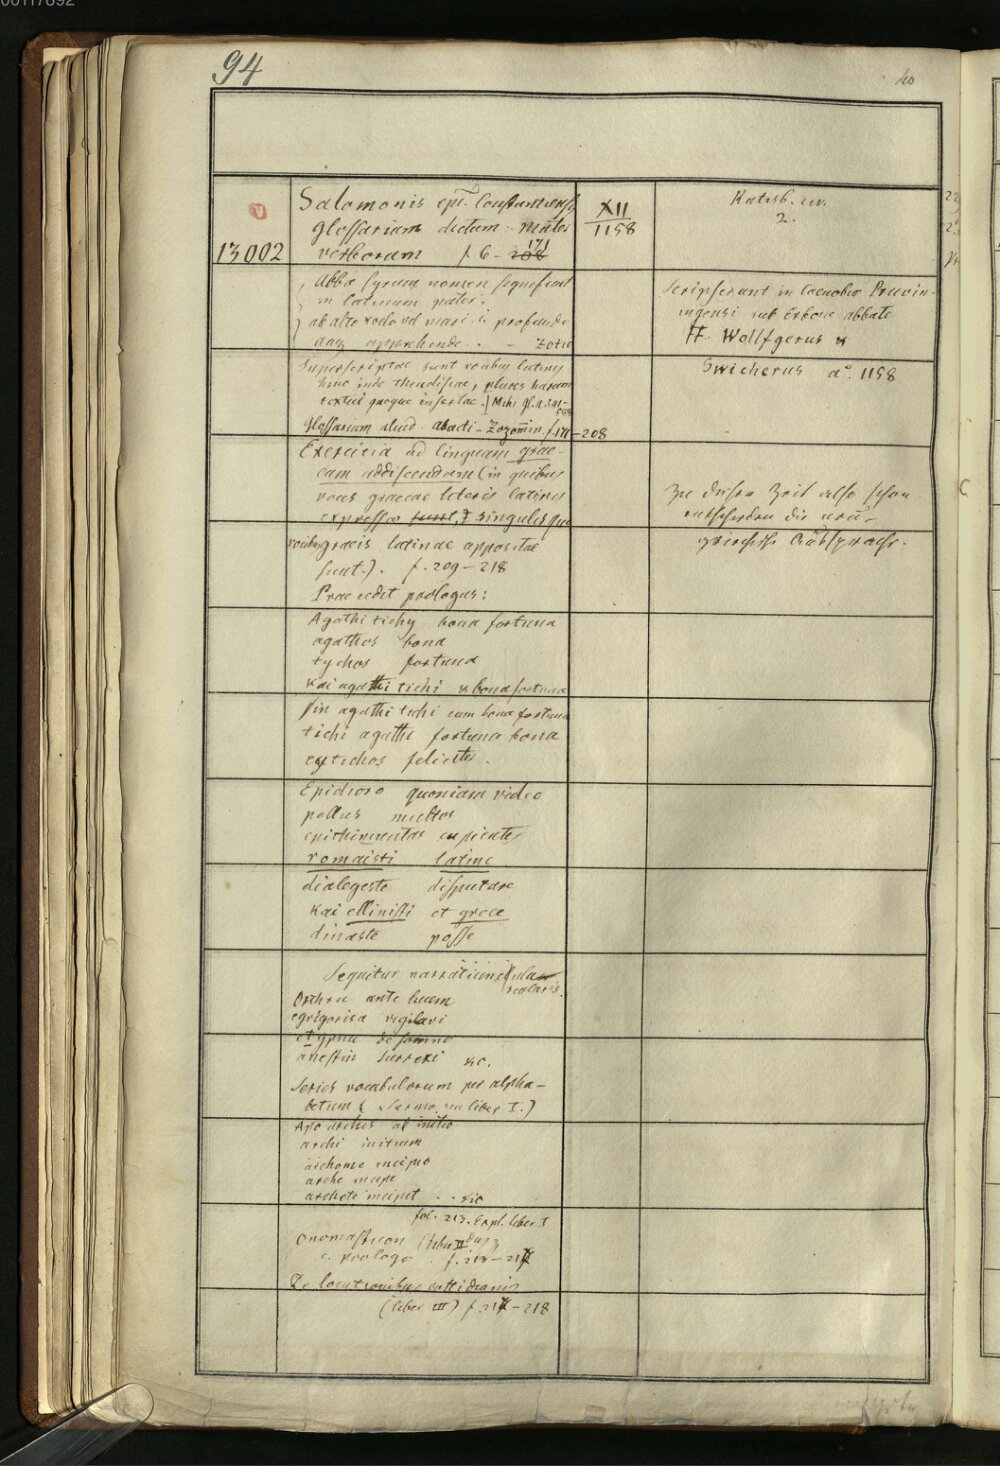 94
40
13002
Salomonis epi. Constantiensis
glossarium dictum mater
verborum f. 6 - 208 171
XII
1158
Ratisb. civ.
2.
Abba syrum nomen significat
in latinum pater.
ab alto vado vel mari i. profundo
apprehende . . - Zotie
Scripserunt in coenobio Pruvin-
ingensi sub Erbone abbate
FF. Wolfgerus &
Swicherus a°. 1158
Superscriptae sunt vocibus latinis
hinc inde theudiscae, plures harum
textui quoque insertae.
Glossarium aliud abacti - Zozomin f. 171 - 208
Exercitia ad linguam grae-
cam addiscendam (in quibus
voces graecae literis latinis
expressae sunt, & singulisque
vocibus graecis latinae appositae
sunt.). f. 209 - 218
Zu dieser Zeit also schon
entschieden die neu-
griechische Aussprache.
Praecedit prologus:
Agathi tichy bona fortuna
agathos bona
tychos fortuna
kai agathi tichi & bona fortuna
sin agathi tichi cum bona fortuna
tichi agathi fortuna bona
eytichos feliciter.
Epidioro quoniam video
pollus multos
epithimuntas cupientes
romaisti latine
dialegeste disputare
kai ellinisti et grece
dinaste posse
Sequitur narratiuncula
scolaris.
Orthru ante lucem
egrigorisa vigilavi
et ypnu de somno
anestin surrexi &c.
Series vocabulorum per alpha-
betum (Sermo seu liber I.)
Apo arches ab initio
archi initium
archome incipio
arche incipe
archete incipit . . sic
fol. 213. Expl. liber I
Onomasticon (liber II dus)
c. prologo . f. 213 - 217
De locutionibus cottidianis
(liber III) f. 217 - 218